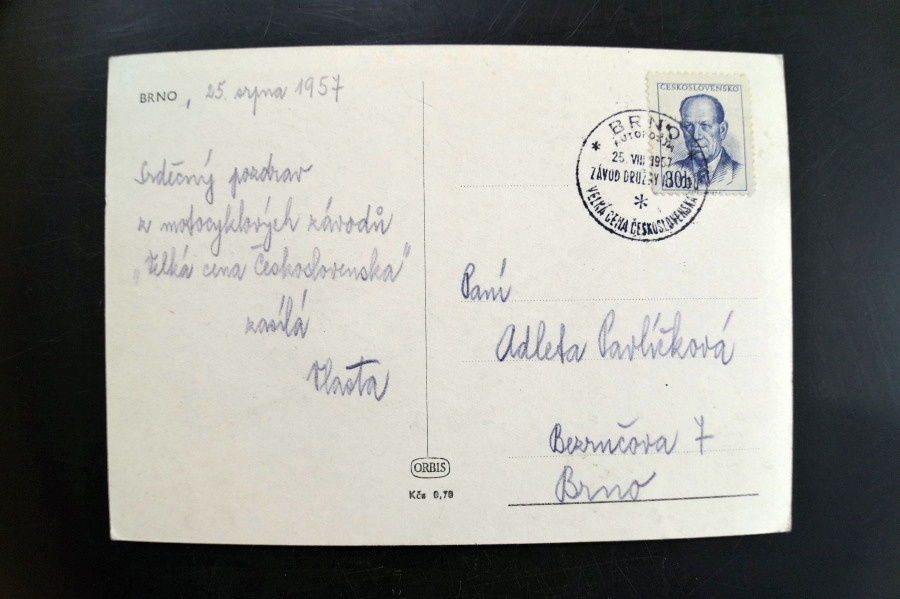 BRNO, 25. srpna 1957
Srdečný pozdrav
z motocyklových závodů
„Velká cena Československa"
zasílá
Vlasta
ORBIS
Kčs 0,70
ČESKOSLOVENSKO
30h
* BRNO *
25. VIII 1957
ZÁVOD DRUŽBY
*
VELKÁ CENA ČESKOSLOVENSKA
Paní
Adleta Pavlíčková
Bezručova 7
Brno